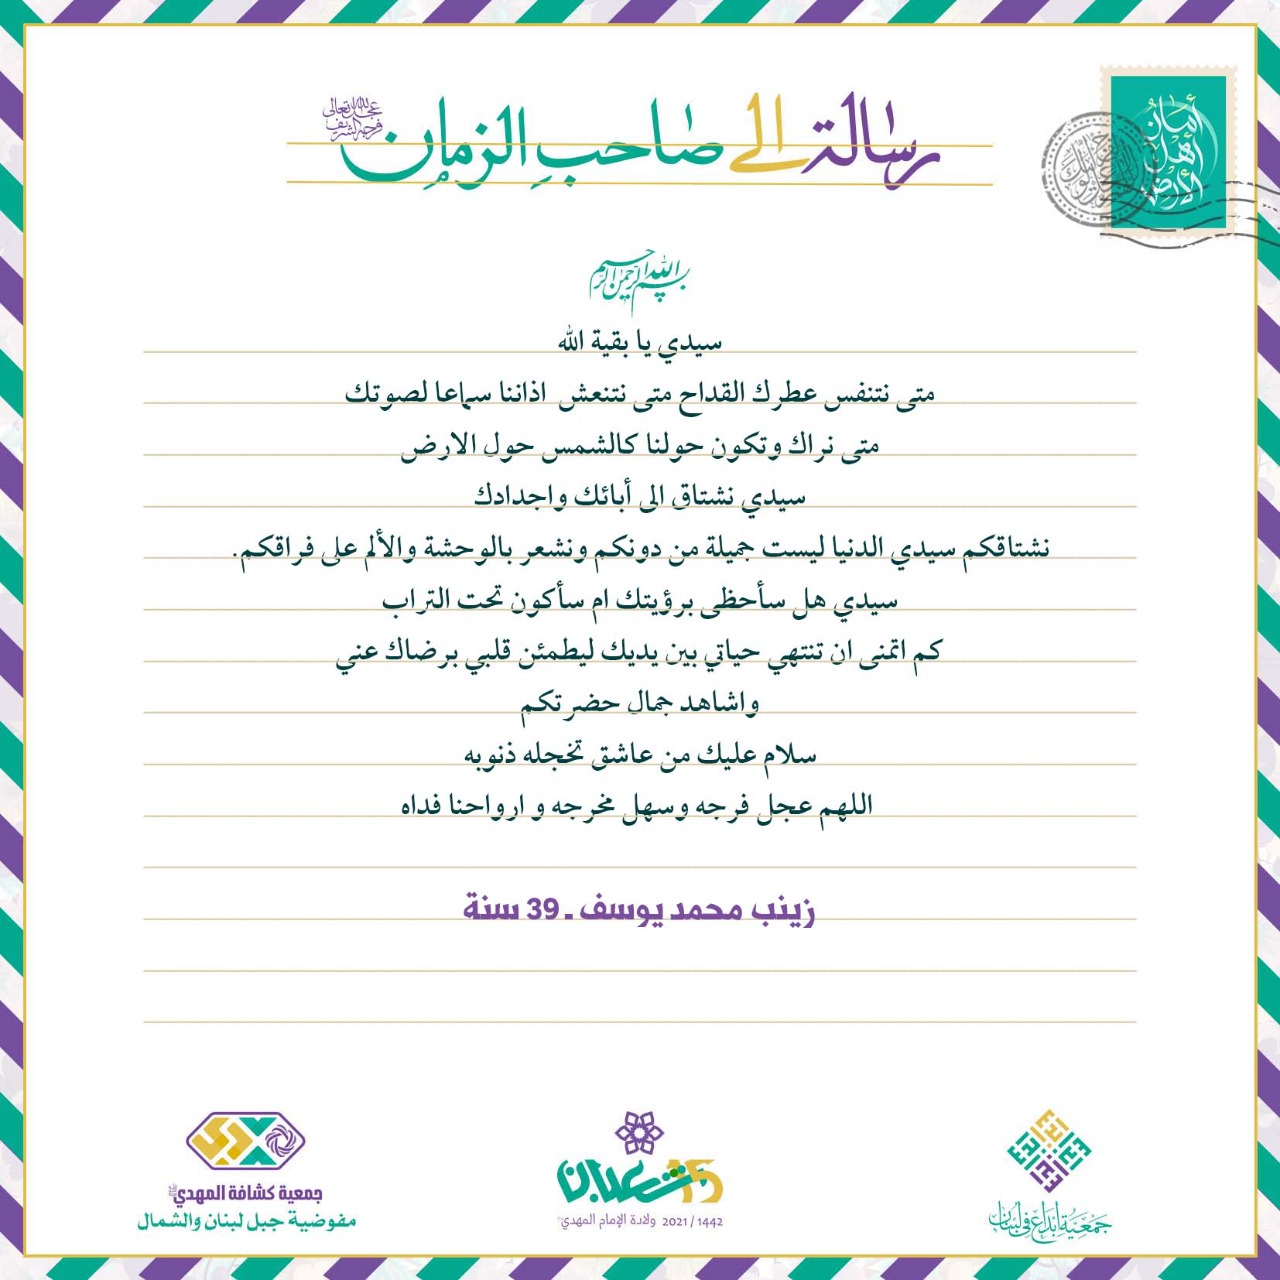 رسالة إلى صاحب الزمان
عجل الله تعالى فرجه الشريف
أمان أهل الأرض
بسم الله الرحمن الرحيم
سيدي يا بقية الله
متى نتنفس عطرك القداح متى نتنعش اذاننا سماعا لصوتك
متى نراك وتكون حولنا كالشمس حول الارض
سيدي نشتاق الى أبائك واجدادك
نشتاقكم سيدي الدنيا ليست جميلة من دونكم ونشعر بالوحشة والألم على فراقكم.
سيدي هل سأحظى برؤيتك ام سأكون تحت التراب
كم اتمنى ان تنتهي حياتي بين يديك ليطمئن قلبي برضاك عني
واشاهد جمال حضرتكم
سلام عليك من عاشق تخجله ذنوبه
اللهم عجل فرجه وسهل مخرجه و ارواحنا فداه
زينب محمد يوسف - 39 سنة
جمعية كشافة المهدي
مفوضية جبل لبنان والشمال
15 شعبان
ولادة الإمام المهدي 1442 / 2021
جمعية إبداع في لبنان